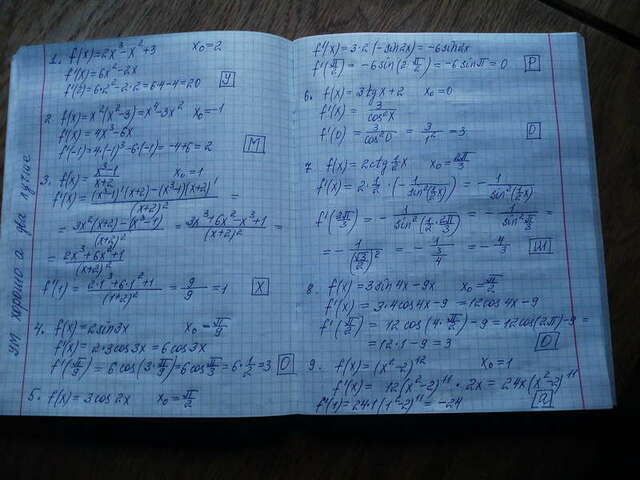 1. f(x)=2x³-x²+3 x₀=2
f'(x)=6x²-2x
f'(2)=6·2²-2·2=6·4-4=20 У
2. f(x)=x²(x²-3)=x⁴-3x² x₀=-1
f'(x)=4x³-6x
f'(-1)=4·(-1)³-6·(-1)=-4+6=2 М
3. f(x)=(x³-1)/(x+2) x₀=1
f'(x)=((x³-1)'(x+2)-(x³-1)(x+2)')/(x+2)² =
= (3x²(x+2)-(x³-1))/(x+2)² = (3x³+6x²-x³+1)/(x+2)² =
= (2x³+6x²+1)/(x+2)²
f'(1)= (2·1³+6·1²+1)/(1+2)² = 9/9 =1 Х
4. f(x)=2sin3x x₀=π/9
f'(x)=2·3cos3x=6cos3x
f'(π/9)=6cos(3·π/9)=6cos π/3=6·1/2=3 О
5. f(x)=3cos2x x₀=π/2
ум хорошо а два лучше
f'(x)=3·2(-sin2x)=-6sin2x
f'(π/2)=-6sin(2·π/2)=-6sinπ=0 Р
6. f(x)=3tgx+2 x₀=0
f'(x)= 3/cos²x
f'(0)= 3/cos²0 = 3/1² =3 О
7. f(x)=2ctg½x x₀=2π/3
f'(x)=2·½·(-1/sin²(½x))=-1/sin²(½x)
f'(2π/3)=-1/sin²(½·2π/3)=-1/sin²π/3=
=-1/(√3/2)²=-1/(3/4)=-4/3 Ш
8. f(x)=3sin4x-9x x₀=π/2
f'(x)=3·4cos4x-9=12cos4x-9
f'(π/2)=12cos(4·π/2)-9=12cos(2π)-9=
=12·1-9=3 О
9. f(x)=(x²-2)¹² x₀=1
f'(x)=12(x²-2)¹¹·2x=24x(x²-2)¹¹
f'(1)=24·1(1²-2)¹¹=-24 А